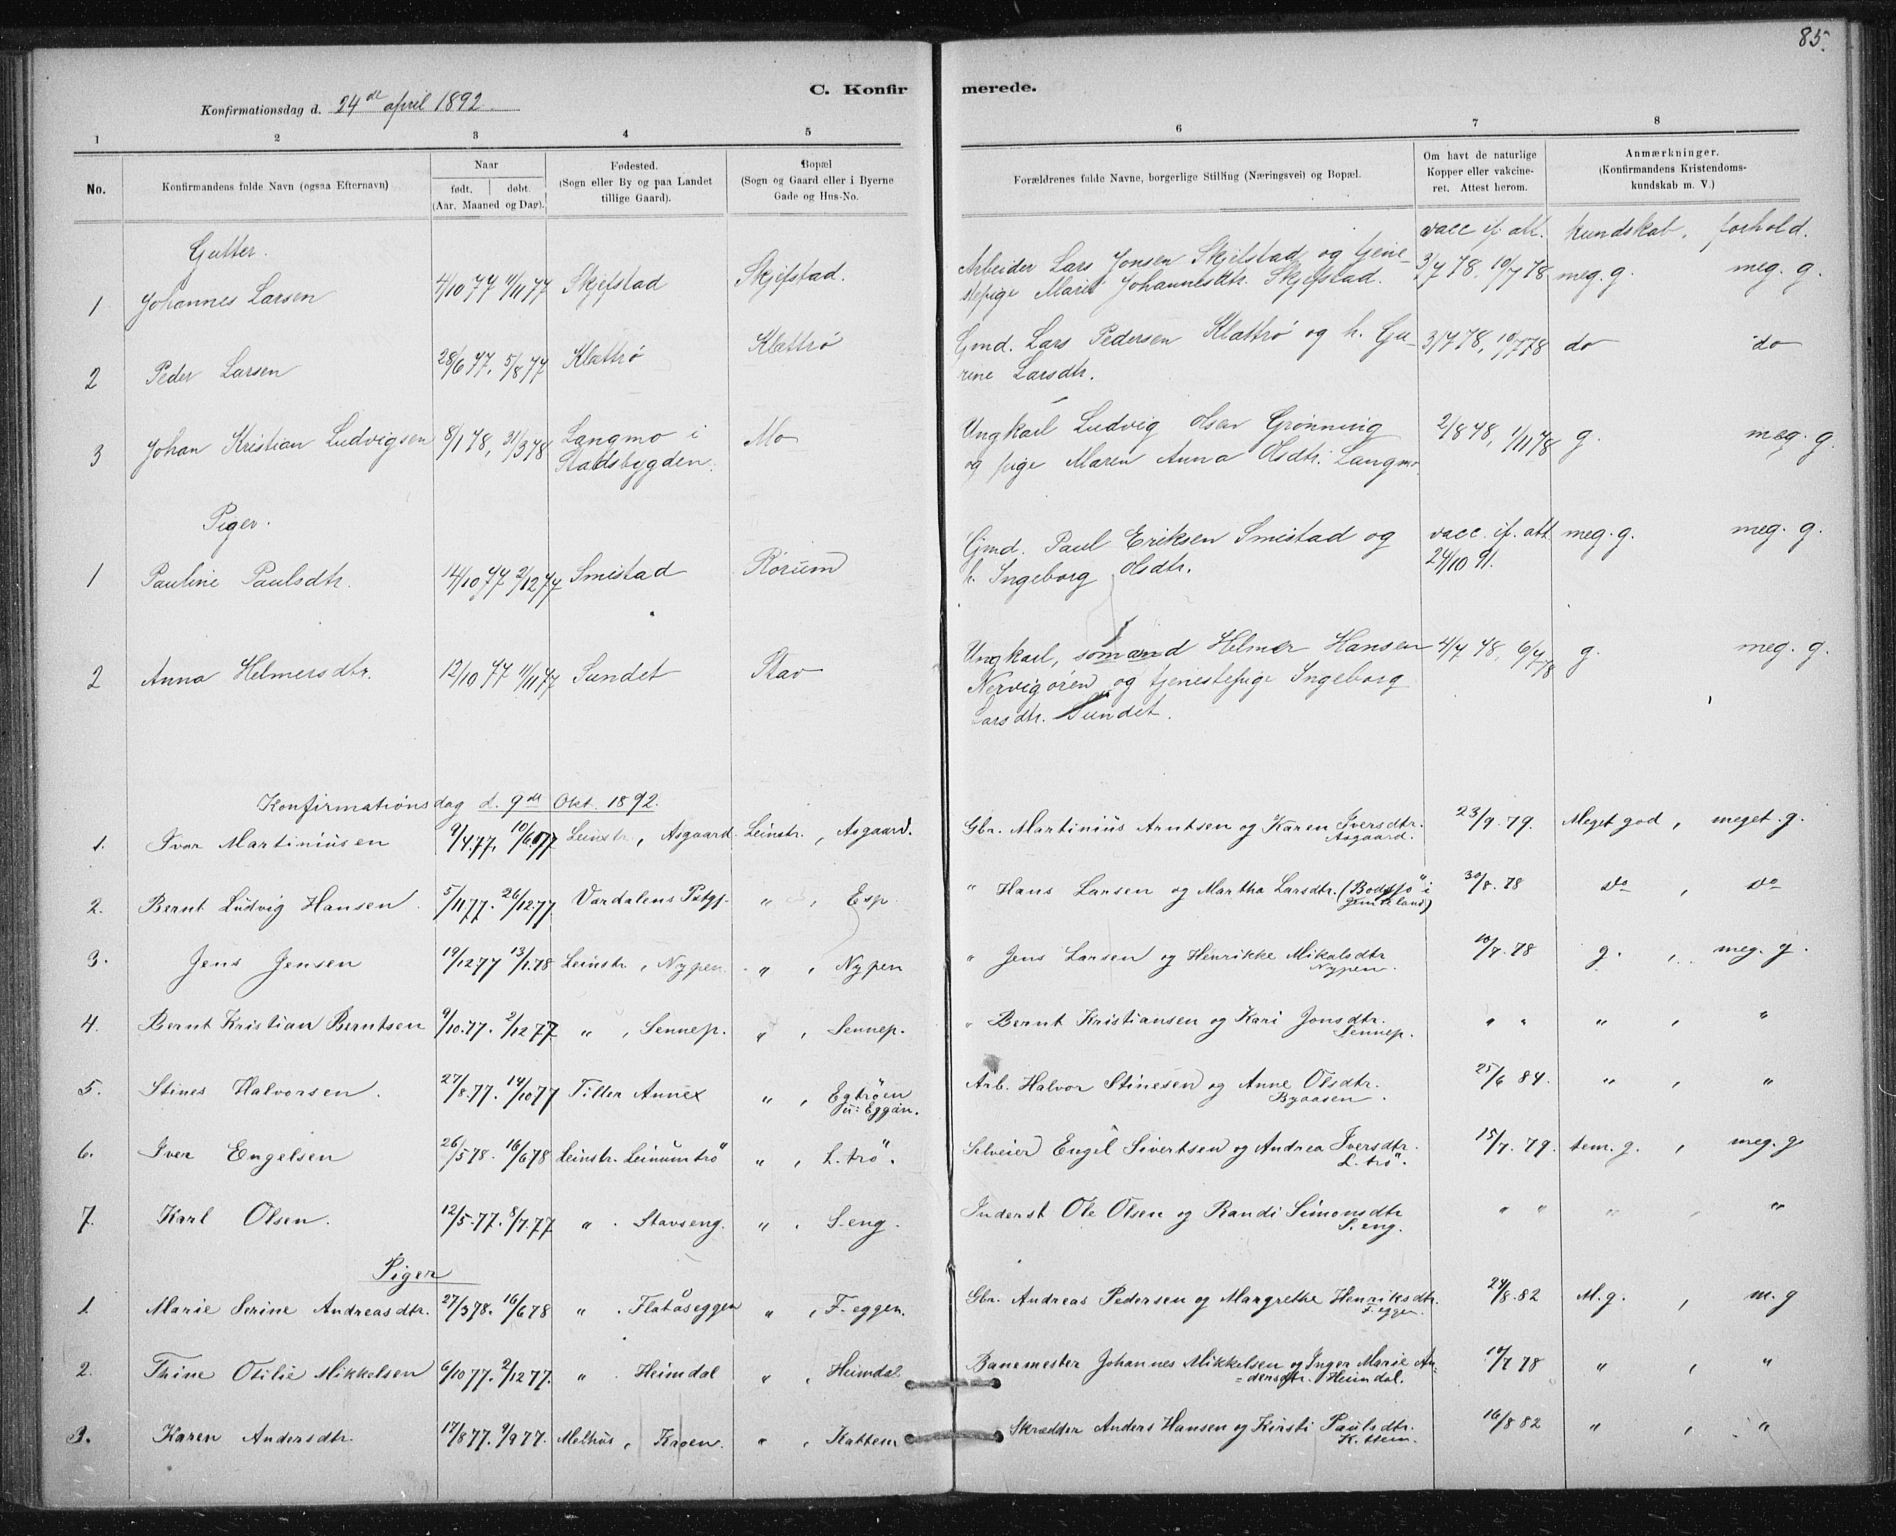 85.
C. Konfirmerede.
Konfirmationsdag d. 24de april 1892
1 2 3 4 5 6 7 8
No. | Konfirmandens fulde Navn (ogsaa Efternavn) | Naar født. døbt. (Aar. Maaned og Dag). | Fødested. (Sogn eller By og paa Landet tillige Gaard). | Bopæl (Sogn og Gaard eller i Byerne Gade og Hus-No. | Forældrenes fulde Navne, borgerlige Stilling (Næringsvei) og Bopæl. | Om havt de naturlige Kopper eller vakcineret. Attest herom. | Anmærkninger. (Konfirmandens Kristendomskundskab m. V.)
Gutter. vacc if. att. kundskab. forhold.
1 Johannes Larsen 4/10 77 4/11 77 Skjefstad Skjefstad. Arbeider Lars Jonsen Skjelstad og tjene- 3/7 78, 10/7 78 meg. g. meg. g.
stepige Marit Johannesdtr. Skjefstad.
2 Peder Larsen 28/6 77, 5/8 77 Klættrø Klættrø Gmd. Lars Pedersen Klættrø og h. Gu- 3/7 78, 10/7 78 do do
rine Larsdtr.
3 Johan Kristian Ludvigsen 8/1 78, 31/3 78 Langmo i Mo Ungkarl Ludvig Olsen Grønning 2/8 78, 1/11 78 g. meg. g.
Stadsbygden. og pige Maren Anna Olsdtr. Langmo
Piger.
1 Pauline Paulsdtr. 14/10 77 2/12 77 Smistad Rorum Gmd. Paul Eriksen Smistad og vacc. if. att meg. g. meg. g.
h. Ingeborg Olsdtr. 24/10 91.
2 Anna Helmersdtr. 12/10 77 11/11 77 Sundet Stav Ungkarl, sømand Helmer Hansen 4/7 78, 6/7 78 g. meg. g.
Nervigøren og tjenestepige Ingeborg
Larsdtr. Sundet.
Konfirmationsdag d. 9de Okt. 1892.
1. Ivar Martiniusen 9/4.77. 10/6 77 Leinstr., Aasgaard. Leinstr., Asgaard. Gbr. Martinius Arntsen og Karen Iversdtr. 23/9. 79. Meget god, meget. g.
Asgaard.
2. Bernt Ludvig Hansen. 5/11 77. 26/12 77 Vardalens Pstgj. " , Esp. " Hans Larsen og Martha Larsdtr. (Bodsjø i 30/8. 78 do , do
Jemteland)
3. Jens Jensen 19/12 77 13/1.78 Leinstr., Nypen. " , Nypen " Jens Larsen og Henrikke Mikalsdtr 10/7. 78 g. , meg. g.
Nypen.
4. Bernt Kristian Berntsen 9/10.77. 2/12 77 " , Sennep. " , Sennep. " Bernt Kristiansen og Kari Jonsdtr. " " " , "
Sennep.
5. Stines Halvorsen. 27/8.77. 14/10 77 Tiller Annex " , Egtrøen Arb. Halvor Stinesen og Anne Olsdtr. 25/6 84. " , "
Byaasen.
6. Iver Engelsen 26/5 78. 16/6 78 Leinstr. Leinumtrø " , L. trø. Selveier Engel Sivertsen og Andrea Iversdtr. 15/7. 79. tem. g. , meg. g
L. trø.
7. Karl Olsen. 12/5.77. 8/7.77 " . Stavseng. " , S-eng. Inderst Ole Olsen og Randi Simonsdtr " " " , "
S. eng.
Piger
1. Marie Serine Andreasdtr. 27/3 78. 16/6 78 " . Flatåseggen " , F-eggen. Gbr. Andreas Pedersen og Margrethe Henriksdtr. 24/8. 82 M. g. , m. g
F. eggen.
2. Thine Otilie Mikkelsen 6/10 77. 2/12 77. " . Heimdal " , Heimdal. Banemester Johannes Mikkelsen og Inger Marie An- 14/7 78 " , "
dersdtr. Heimdal.
3. Karen Andersdtr. 17/8 77. 9/9 77. Melhus, Kroen. " , Kattem Skrædder Anders Hansen og Kirsti Paulsdtr. 16/8 82 " , "